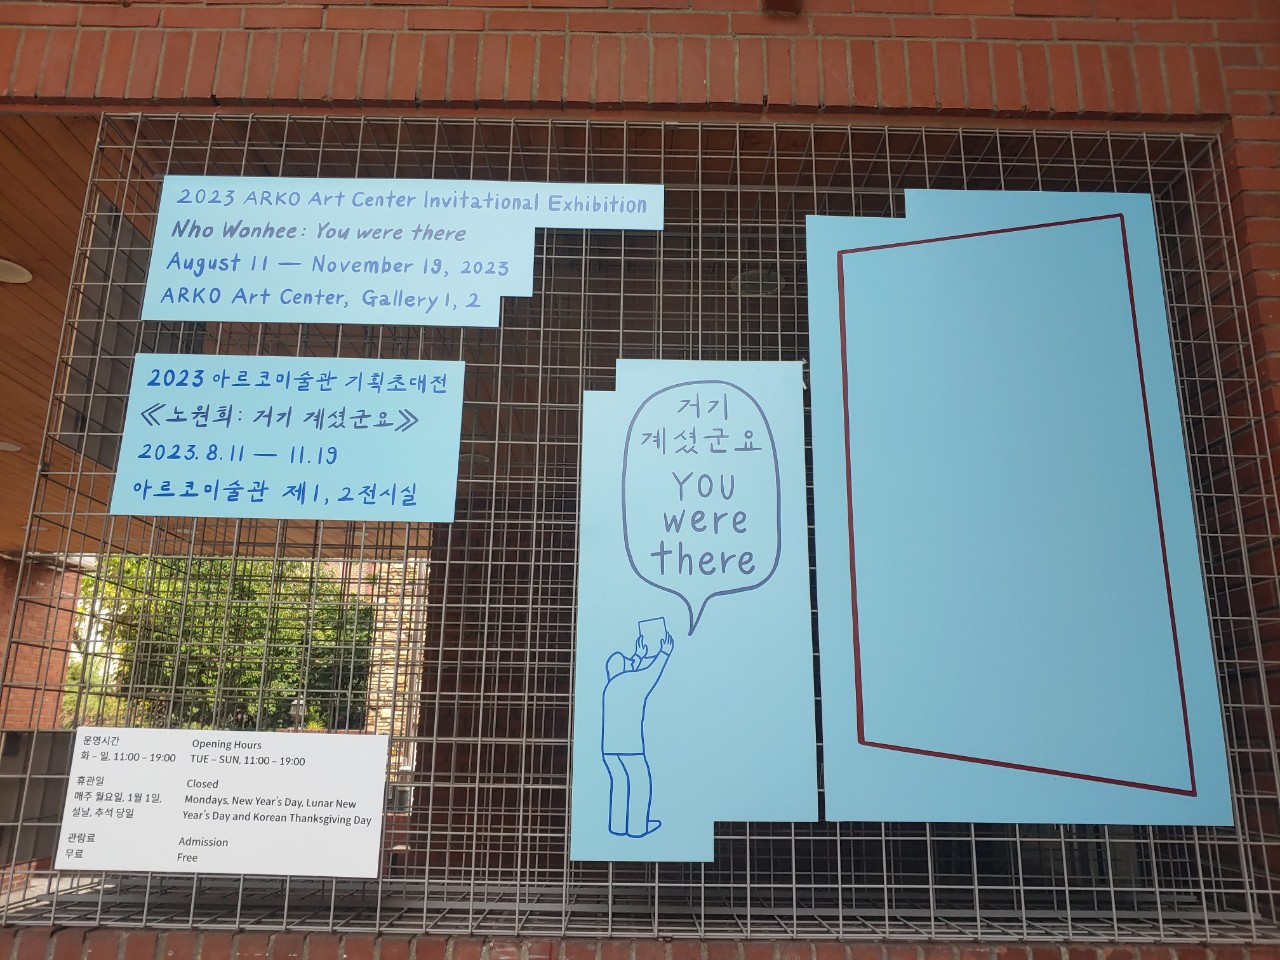 2023 ARKO Art Center Invitational Exhibition
Nho Wonhee: You were there
August 11 — November 19, 2023
ARKO Art Center, Gallery 1, 2
2023 아르코미술관 기획초대전
《노원희: 거기 계셨군요》
2023. 8. 11 — 11. 19
아르코미술관 제1, 2전시실
거기
계셨군요
YOU
were
there
운영시간
화 – 일, 11:00 – 19:00
휴관일
매주 월요일, 1월 1일,
설날, 추석 당일
관람료
무료
Opening Hours
TUE – SUN, 11:00 – 19:00
Closed
Mondays, New Year's Day, Lunar New
Year's Day and Korean Thanksgiving Day
Admission
Free